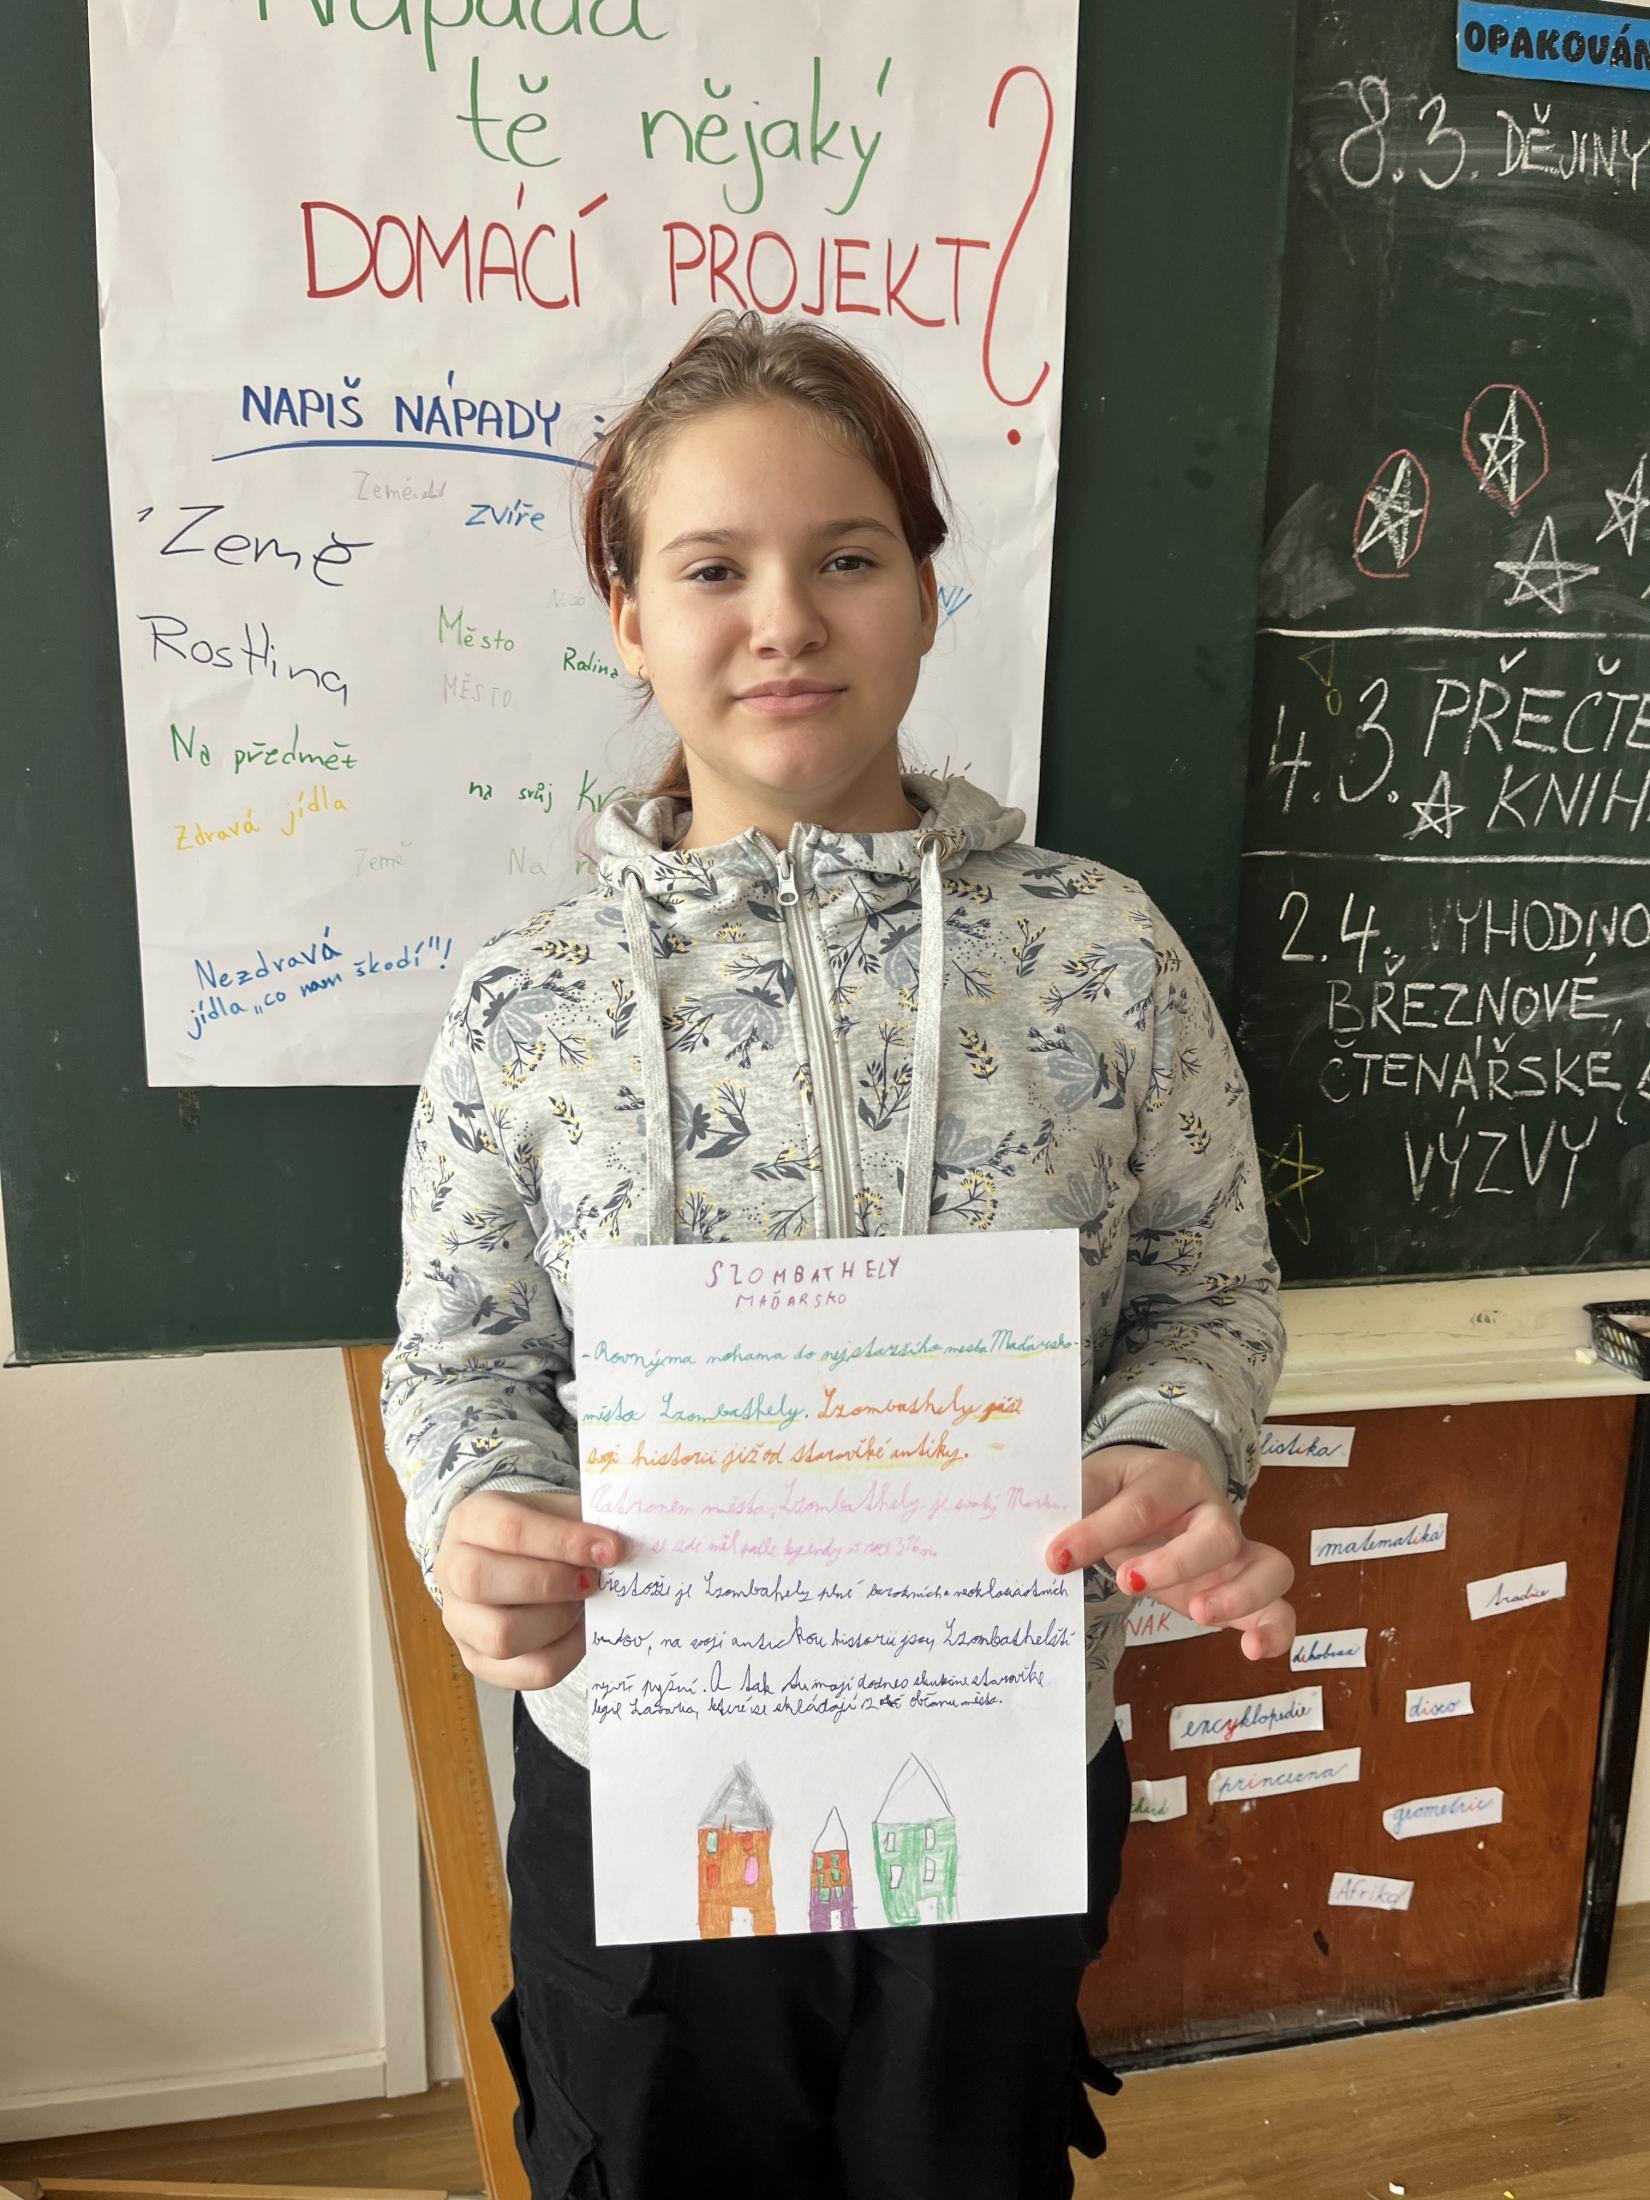 Napadá
tě nějaký
DOMÁCÍ PROJEKT?
NAPIŠ NÁPADY :
Země
zvíře
Země
Rostlina
Město
Rodina
MĚSTO
Na předmět
na svůj
Zdravá jídla
Země
Na
Nezdravá
jídla „co nam škodí"!
OPAKOVÁN
8.3. DĚJINY
4.3. PŘEČTE
KNIH
2.4. VYHODNO
BŘEZNOVÉ,
ČTENÁŘSKÉ
VÝZVY
SZOMBATHELY
MAĎARSKO
- Rovnýma nohama do nejstaršího města Maďarsko-
města Szombathely. Szombathely píše
svoji historii již od starověké antiky.
Patronem města, Szombathely je svatý Martin.
se zde měl podle legendy v roce 316 n.
Přestože je Szombahely plné barokních a neoklasicistních
budov, na svoji antickou historii jsou Szombathelští
nejvíc pyšní. A tak tu mají dodnes skutečné starověké
legie Savaria, které se skládají z občanu města.
listika
matematika
tradice
NAK
encyklopedie
disco
princezna
geometrie
Afrika